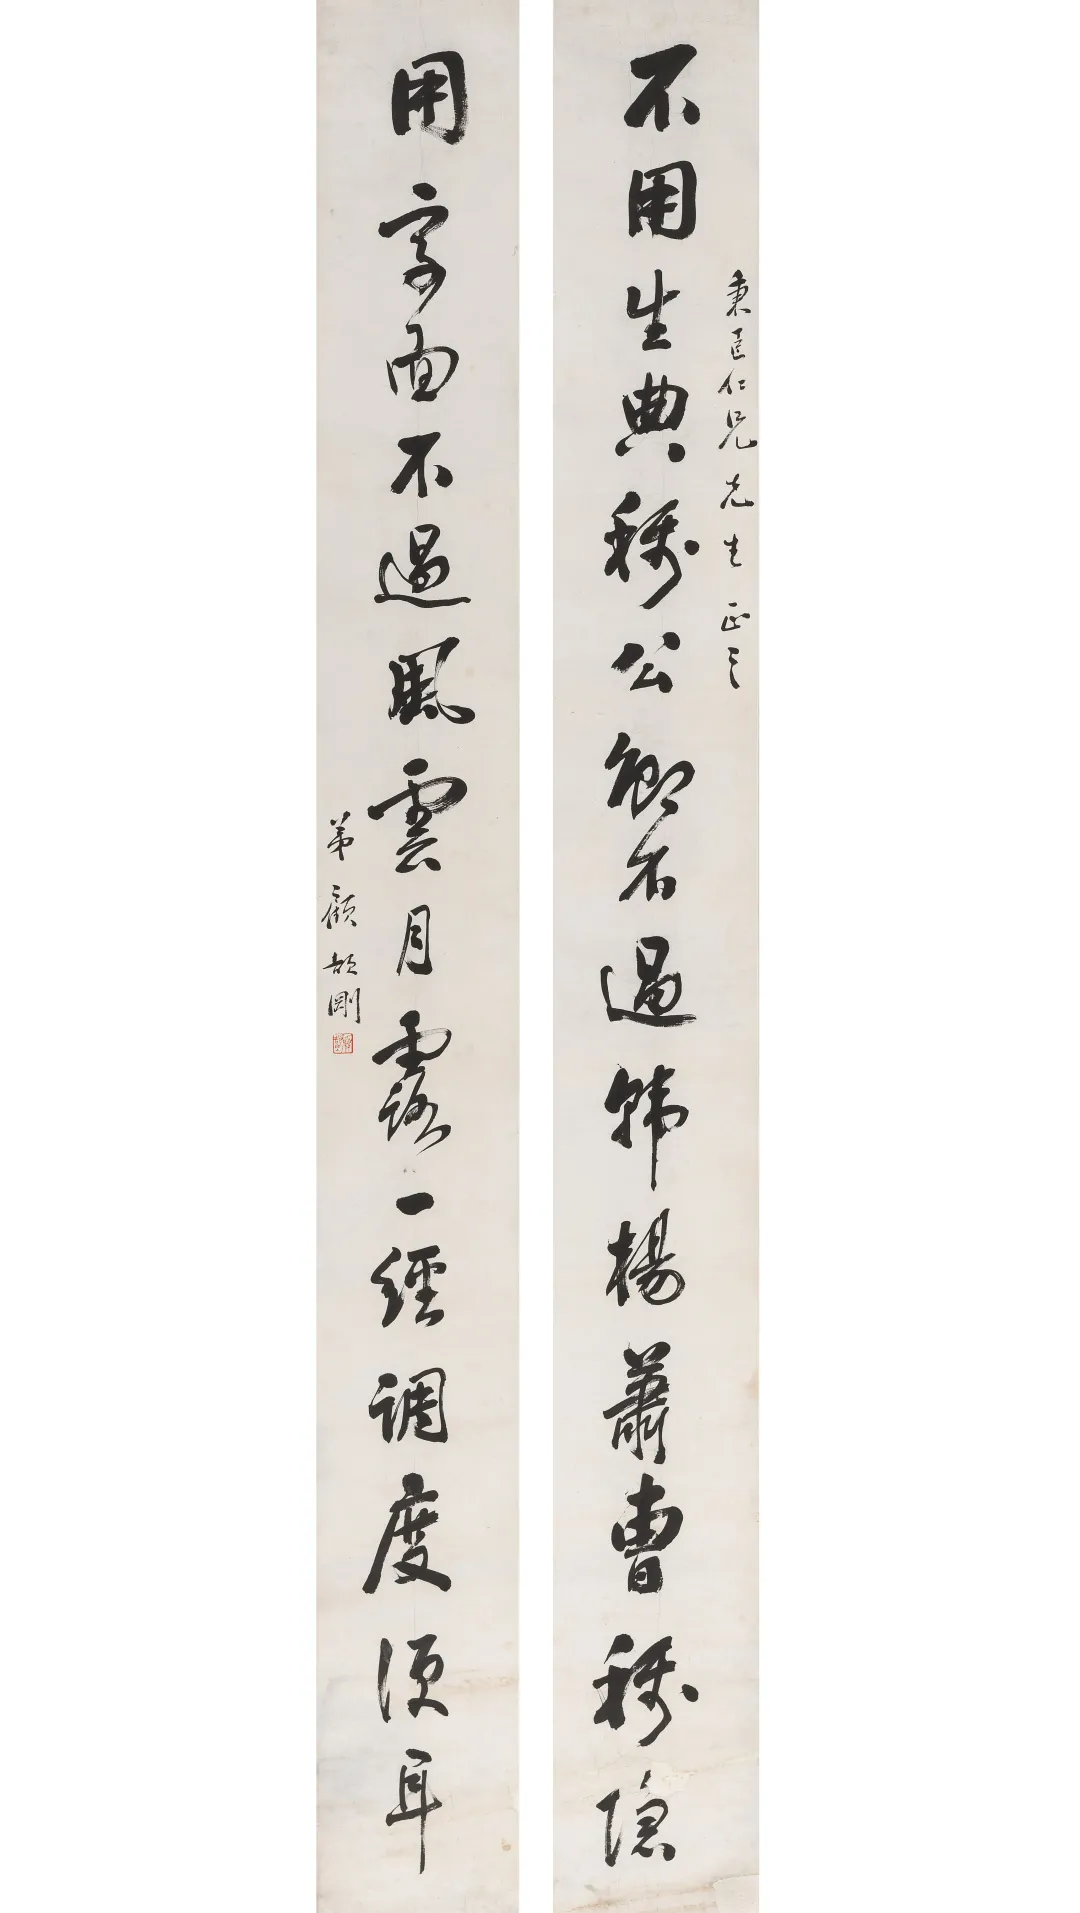 秉臣仁兄先生正之
不用生典稱公卿不過韓楊蕭曹稱隱
用字面不過風雲月露一經調度便耳
弟顧頡剛